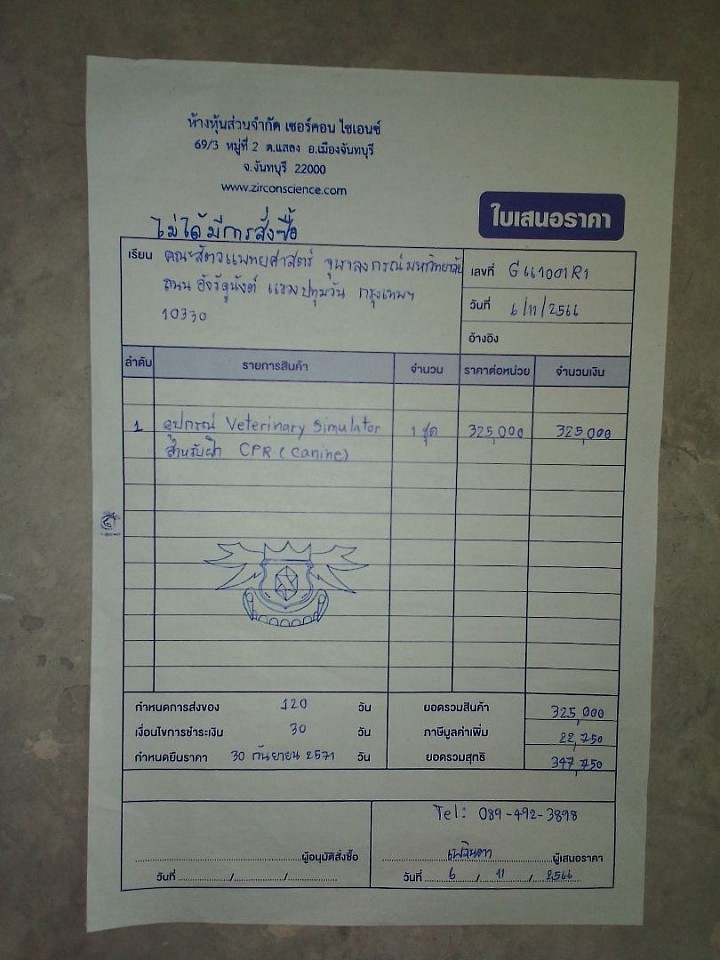 ห้างหุ้นส่วนจำกัด เซอร์คอน ไซเอนซ์
69/3 หมู่ที่ 2 ต.แสลง อ.เมืองจันทบุรี
จ.จันทบุรี 22000
www.zirconscience.com
ใบเสนอราคา
ไม่ได้มีการสั่งซื้อ
เรียน คณะสัตวแพทยศาสตร์ จุฬาลงกรณ์มหาวิทยาลัย
ถนน อังรีดูนังต์ แขวงปทุมวัน กรุงเทพฯ
10330
เลขที่ G661001R1
วันที่ 6/11/2566
อ้างอิง
ลำดับ รายการสินค้า จำนวน ราคาต่อหน่วย จำนวนเงิน
1 อุปกรณ์ Veterinary Simulator 1 ชุด 325,000 325,000
สำหรับฝึก CPR (canine)
กำหนดการส่งของ 120 วัน ยอดรวมสินค้า 325,000
เงื่อนไขการชำระเงิน 30 วัน ภาษีมูลค่าเพิ่ม 22,750
กำหนดยืนราคา 30 กันยายน 2571 วัน ยอดรวมสุทธิ 347,750
Tel: 089-492-3898
ผู้อนุมัติสั่งซื้อ ผู้เสนอราคา
วันที่ / / วันที่ 6 / 11 / 2566